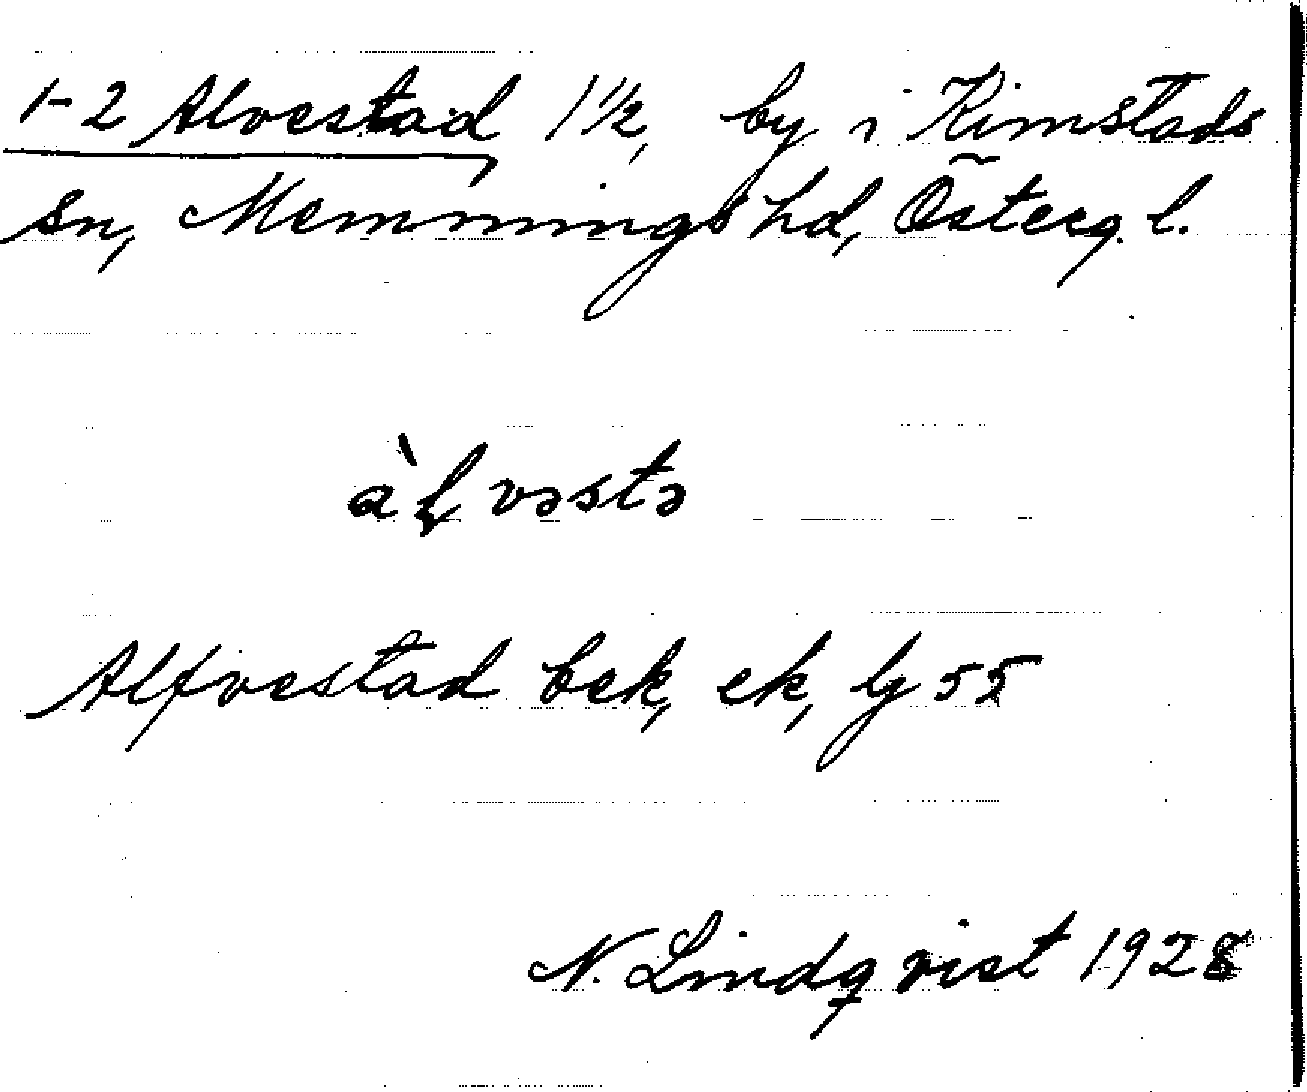 1-2 Alvestad 1 1/2, by i Kimstads
sn, Memmings hd, Österg. l.
àḷvəstə
Alfvestad bek, ek, Gj 55
N. Lindqvist 1928